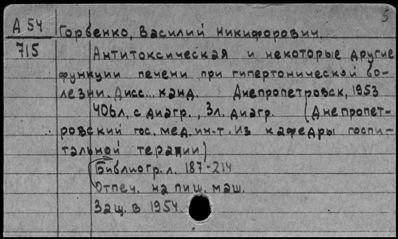 5
А 54 Горбенко, Василий Никифорович.
715 Антитоксическая и некоторые другие
функции печени при гипертонической бо-
лезни. Дисс... канд. Днепропетровск, 1953
406л. с диагр., 3л. диагр. (Днепропет-
ровский гос. мед. ин-т. Из кафедры госпи-
тальной терапии)
(Библиогр. л. 187-214
Отпеч. на пиш. маш.
Защ. в 1954.